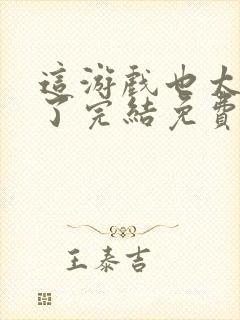 這游戲也太
了完結免費
王泰吉